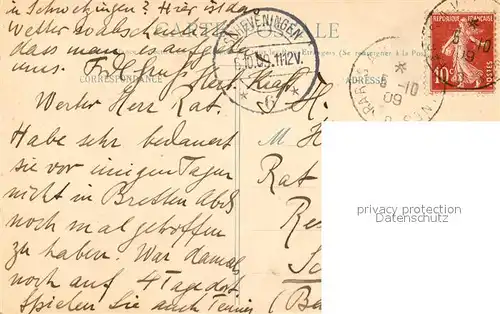 in Schwetzingen? Hier ist das
Wetter so abscheulich
dass man es aufgeben
muss. Frdl. Gruss Herb. Kiefl.
CARTE POSTALE
(Se renseigner à la Poste)
CORRESPONDANCE
ADRESSE
SCHEVENINGEN
6.10.09.11-12V.
RÉPUBLIQUE FRANÇAISE
10c
5 -10
09
Werter Herr Rat.
Habe sehr bedauert
sie vor einigen Tagen
nicht in Bretten
noch mal getroffen
zu haben. War damals
noch auf 4 Tage dort.
Spielen Sie auch Tennis
H.
M H
Rat
Re
(Ba
privacy protection
Datenschutz